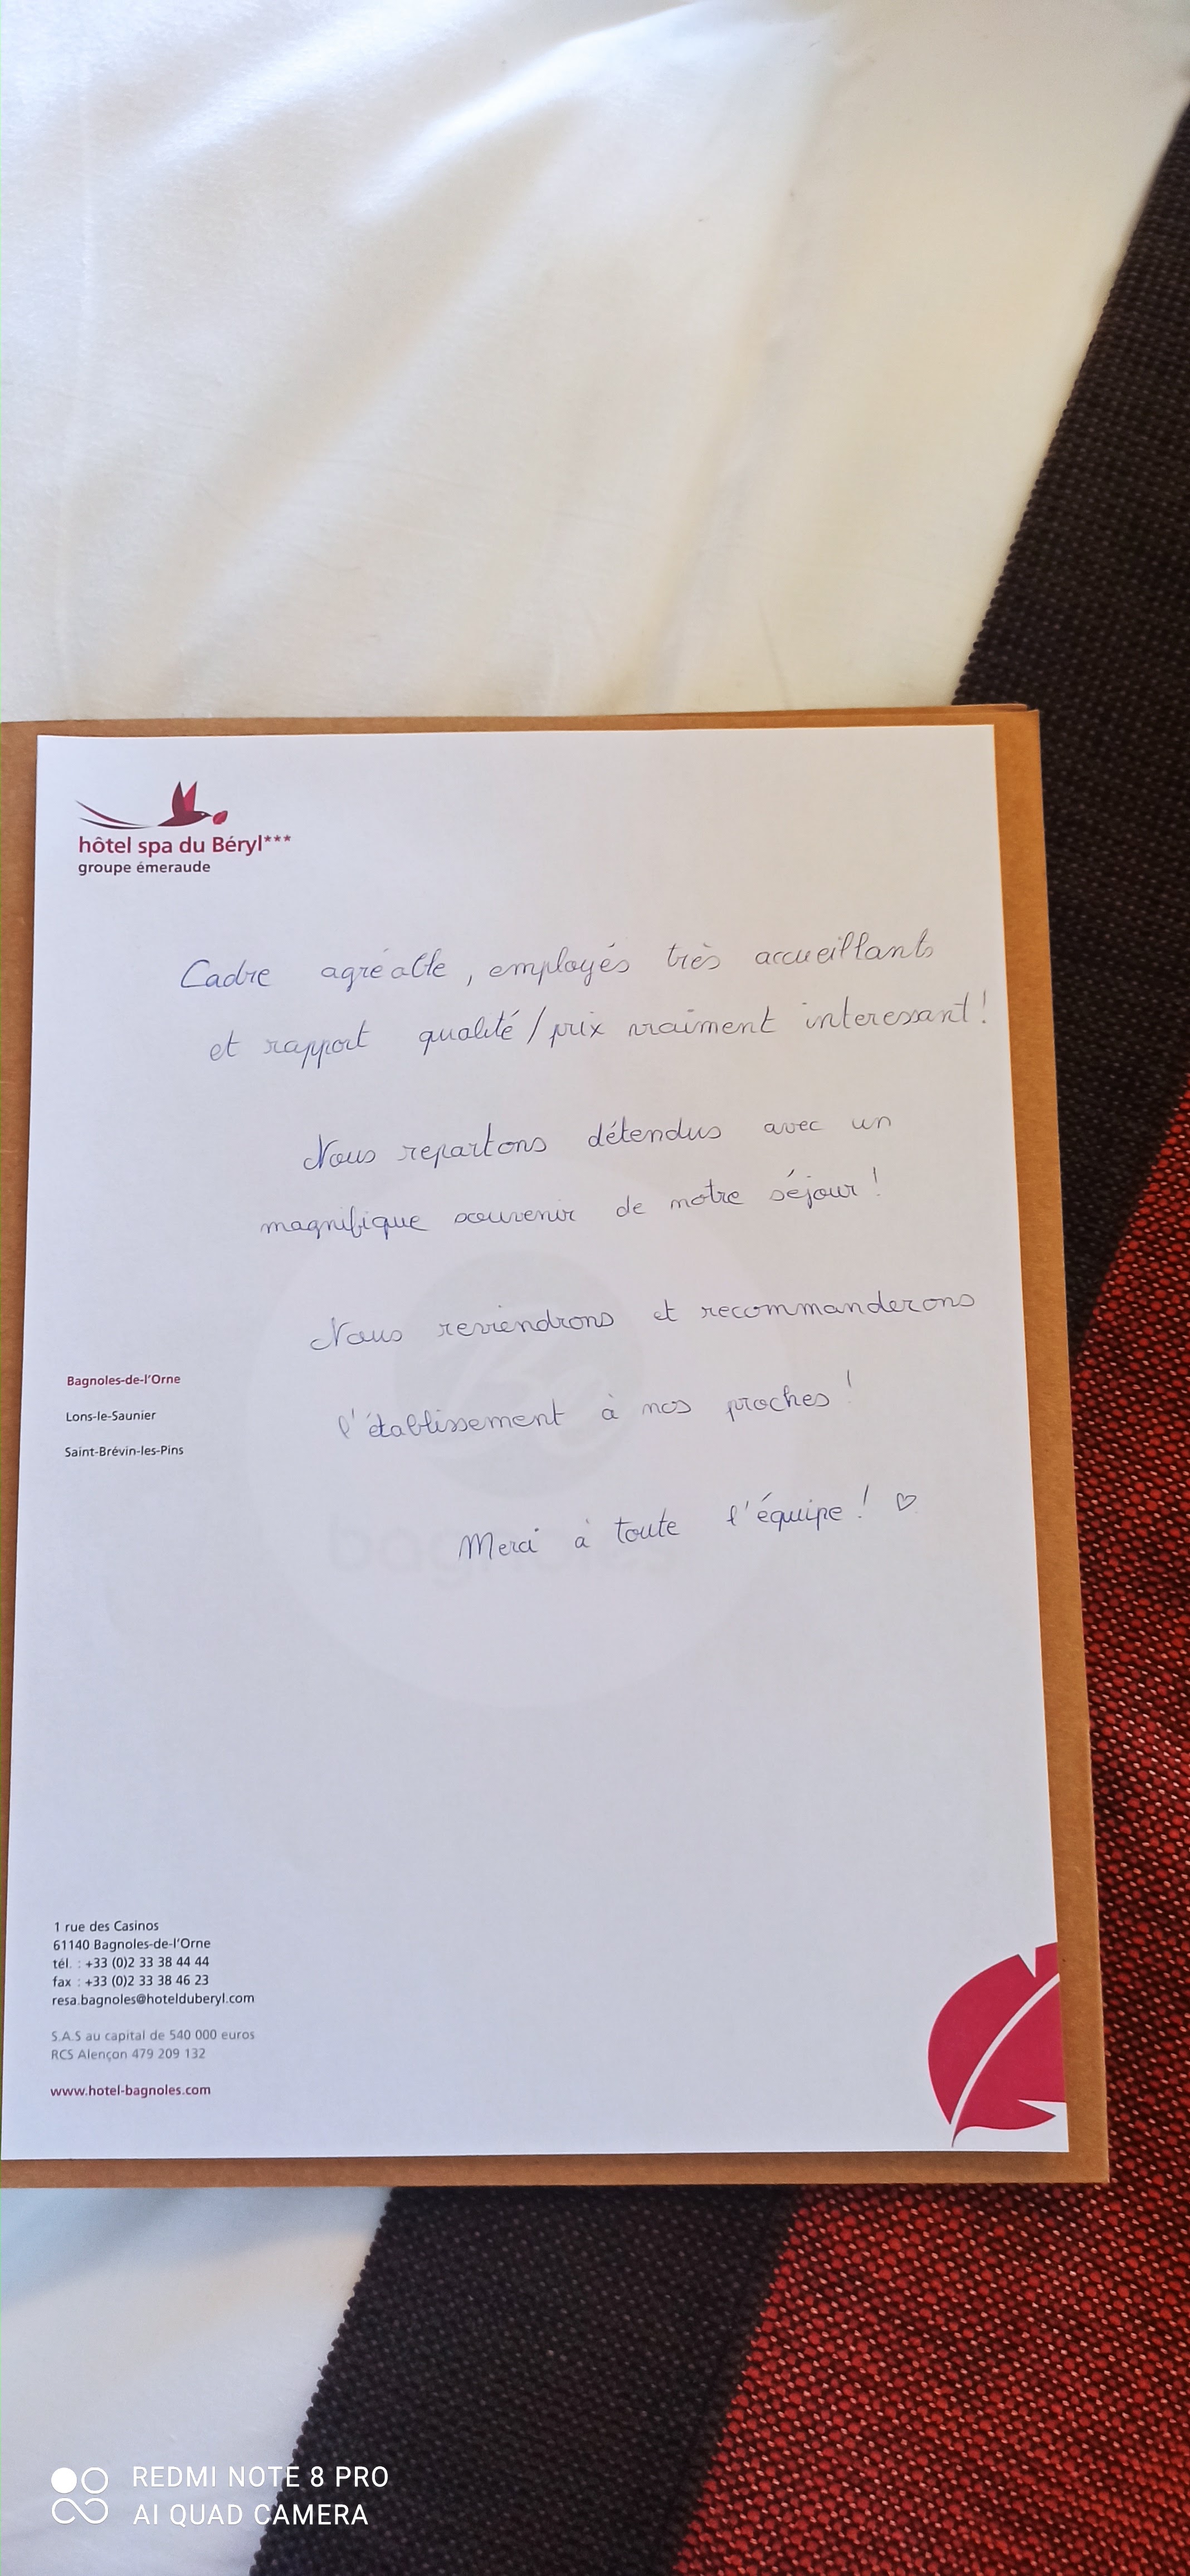 hôtel spa du Béryl***
groupe émeraude
Cadre agréable, employés très accueillants
et rapport qualité/prix vraiment interessant!
Nous repartons détendus avec un
magnifique souvenir de notre séjour!
Nous reviendrons et recommanderons
l'établissement à nos proches!
Merci à toute l'équipe! ♡
Bagnoles-de-l'Orne
Lons-le-Saunier
Saint-Brévin-les-Pins
bagnoles
1 rue des Casinos
61140 Bagnoles-de-l'Orne
tél. : +33 (0)2 33 38 44 44
fax : +33 (0)2 33 38 46 23
resa.bagnoles@hotelduberyl.com
S.A.S au capital de 540 000 euros
RCS Alençon 479 209 132
www.hotel-bagnoles.com
REDMI NOTE 8 PRO
AI QUAD CAMERA